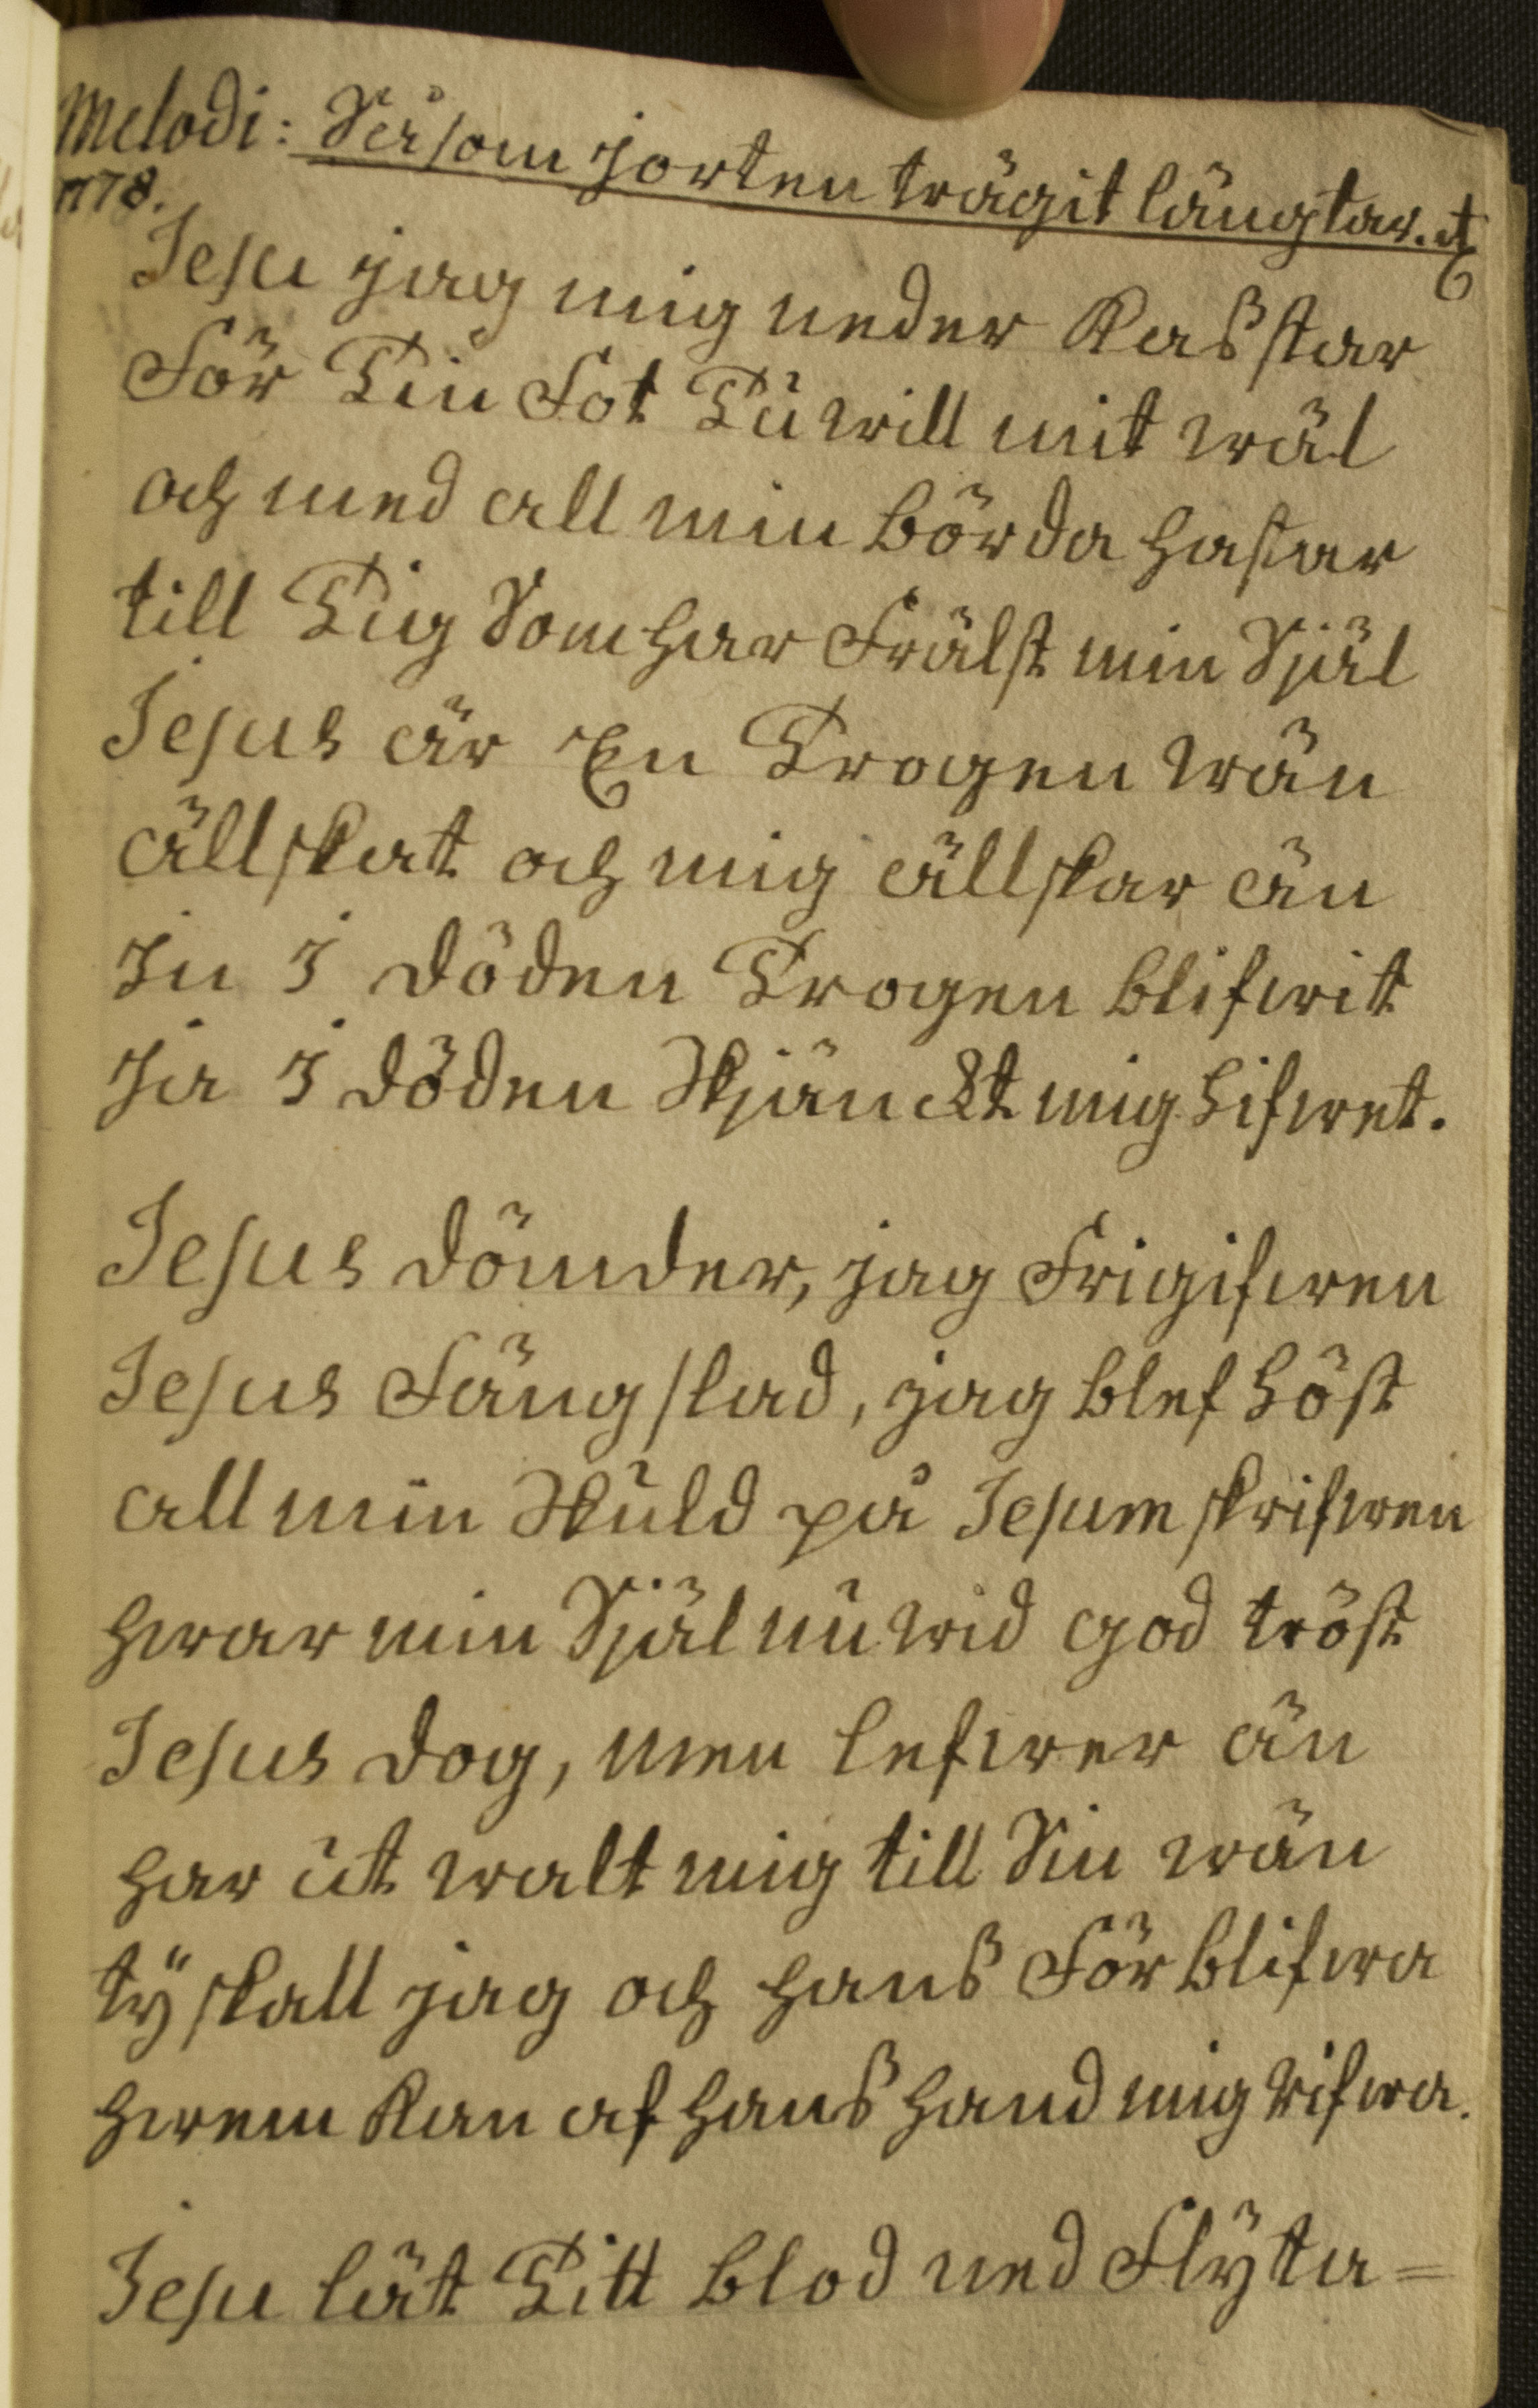 Melodi: Såsom jorten trägit längtar. etc
1778.
Jesu jag mig neder Kasstar
För Tin Fot Tu will mit wäl
och med all min börda hastar
till Tig Som har Frälst min Själ
Jesus är En Trogen wän
ällskatt och mig ällskar än
In I döden Trogen blifwit
Ja I döden Skjänckt mig Lifwet.
Jesus dömder, jag Frigifwen
Jesus Fängslad, jag blef Löst
all min Skuld på Jesum skrifwen
hwar min Själ nu wid god tröst
Jesus dog, men lefwer än
har ut walt mig till Sin wän
ty skall jag och hans Förblifwa
hwem Kan af hans hand mig rifwa.
Jesu lät Titt blod ned Flyta=